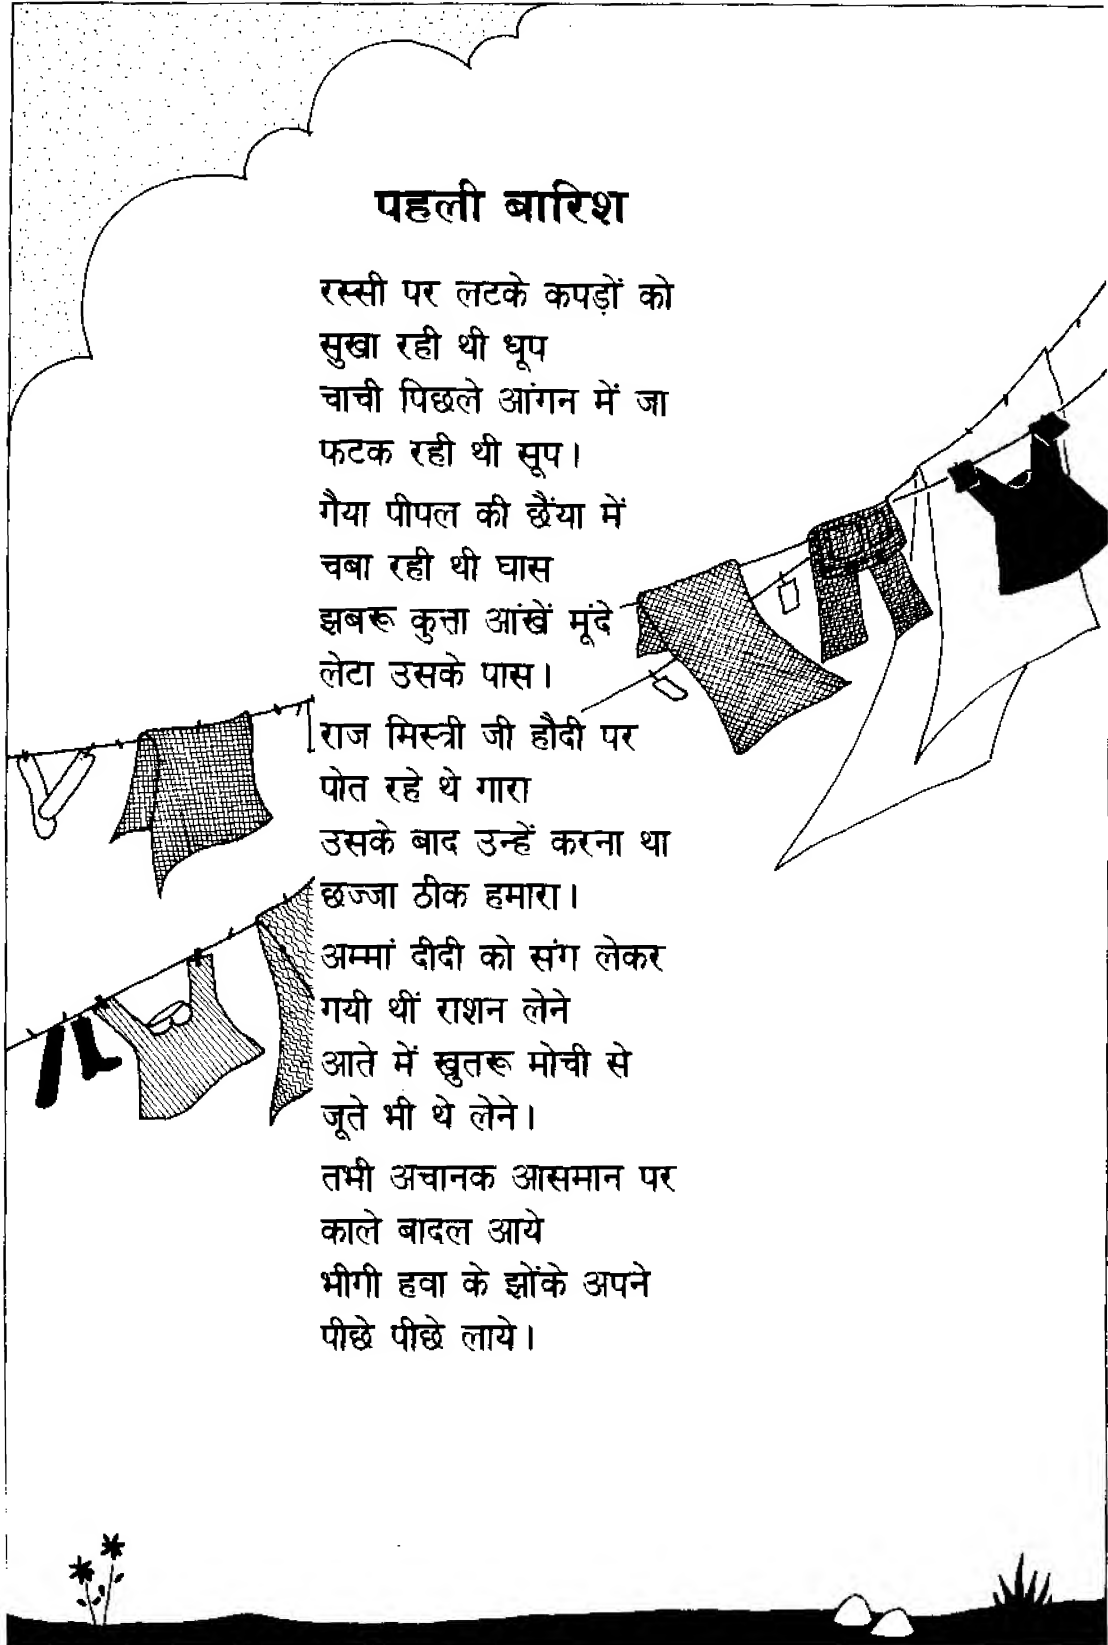 पहली बारिश
रस्सी पर लटके कपड़ों को
सुखा रही थी धूप
चाची पिछले आंगन में जा
फटक रही थी सूप।
गैया पीपल की छैंया में
चबा रही थी घास
झबरू कुत्ता आंखें मूंदे
लेटा उसके पास।
राज मिस्त्री जी हौदी पर
पोत रहे थे गारा
उसके बाद उन्हें करना था
छज्जा ठीक हमारा।
अम्मां दीदी को संग लेकर
गयी थीं राशन लेने
आते में खुतरू मोची से
जूते भी थे लेने।
तभी अचानक आसमान पर
काले बादल आये
भीगी हवा के झोंके अपने
पीछे पीछे लाये।